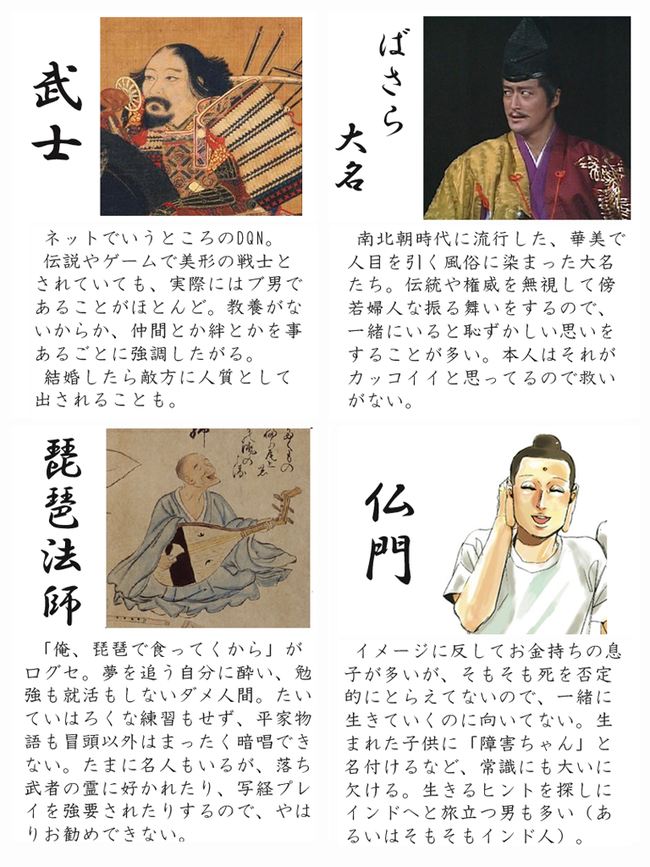 武士
ネットでいうところのDQN。
伝説やゲームで美形の戦士と
されていても、実際にはブ男で
あることがほとんど。教養がな
いからか、仲間とか絆とかを事
あるごとに強調したがる。
結婚したら敵方に人質として
出されることも。
ばさら
大名
南北朝時代に流行した、華美で
人目を引く風俗に染まった大名
たち。伝統や権威を無視して傍
若婦人な振る舞いをするので、
一緒にいると恥ずかしい思いを
することが多い。本人はそれが
カッコイイと思ってるので救い
がない。
琵琶法師
「俺、琵琶で食ってくから」が
口グセ。夢を追う自分に酔い、勉
強も就活もしないダメ人間。たい
ていはろくな練習もせず、平家物
語も冒頭以外はまったく暗唱でき
ない。たまに名人もいるが、落ち
武者の霊に好かれたり、写経プレ
イを強要されたりするので、やは
りお勧めできない。
仏門
イメージに反してお金持ちの息
子が多いが、そもそも死を否定
的にとらえてないので、一緒に
生きていくのに向いてない。生
まれた子供に「障害ちゃん」と
名付けるなど、常識にも大いに
欠ける。生きるヒントを探しに
インドへと旅立つ男も多い（あ
るいはそもそもインド人）。